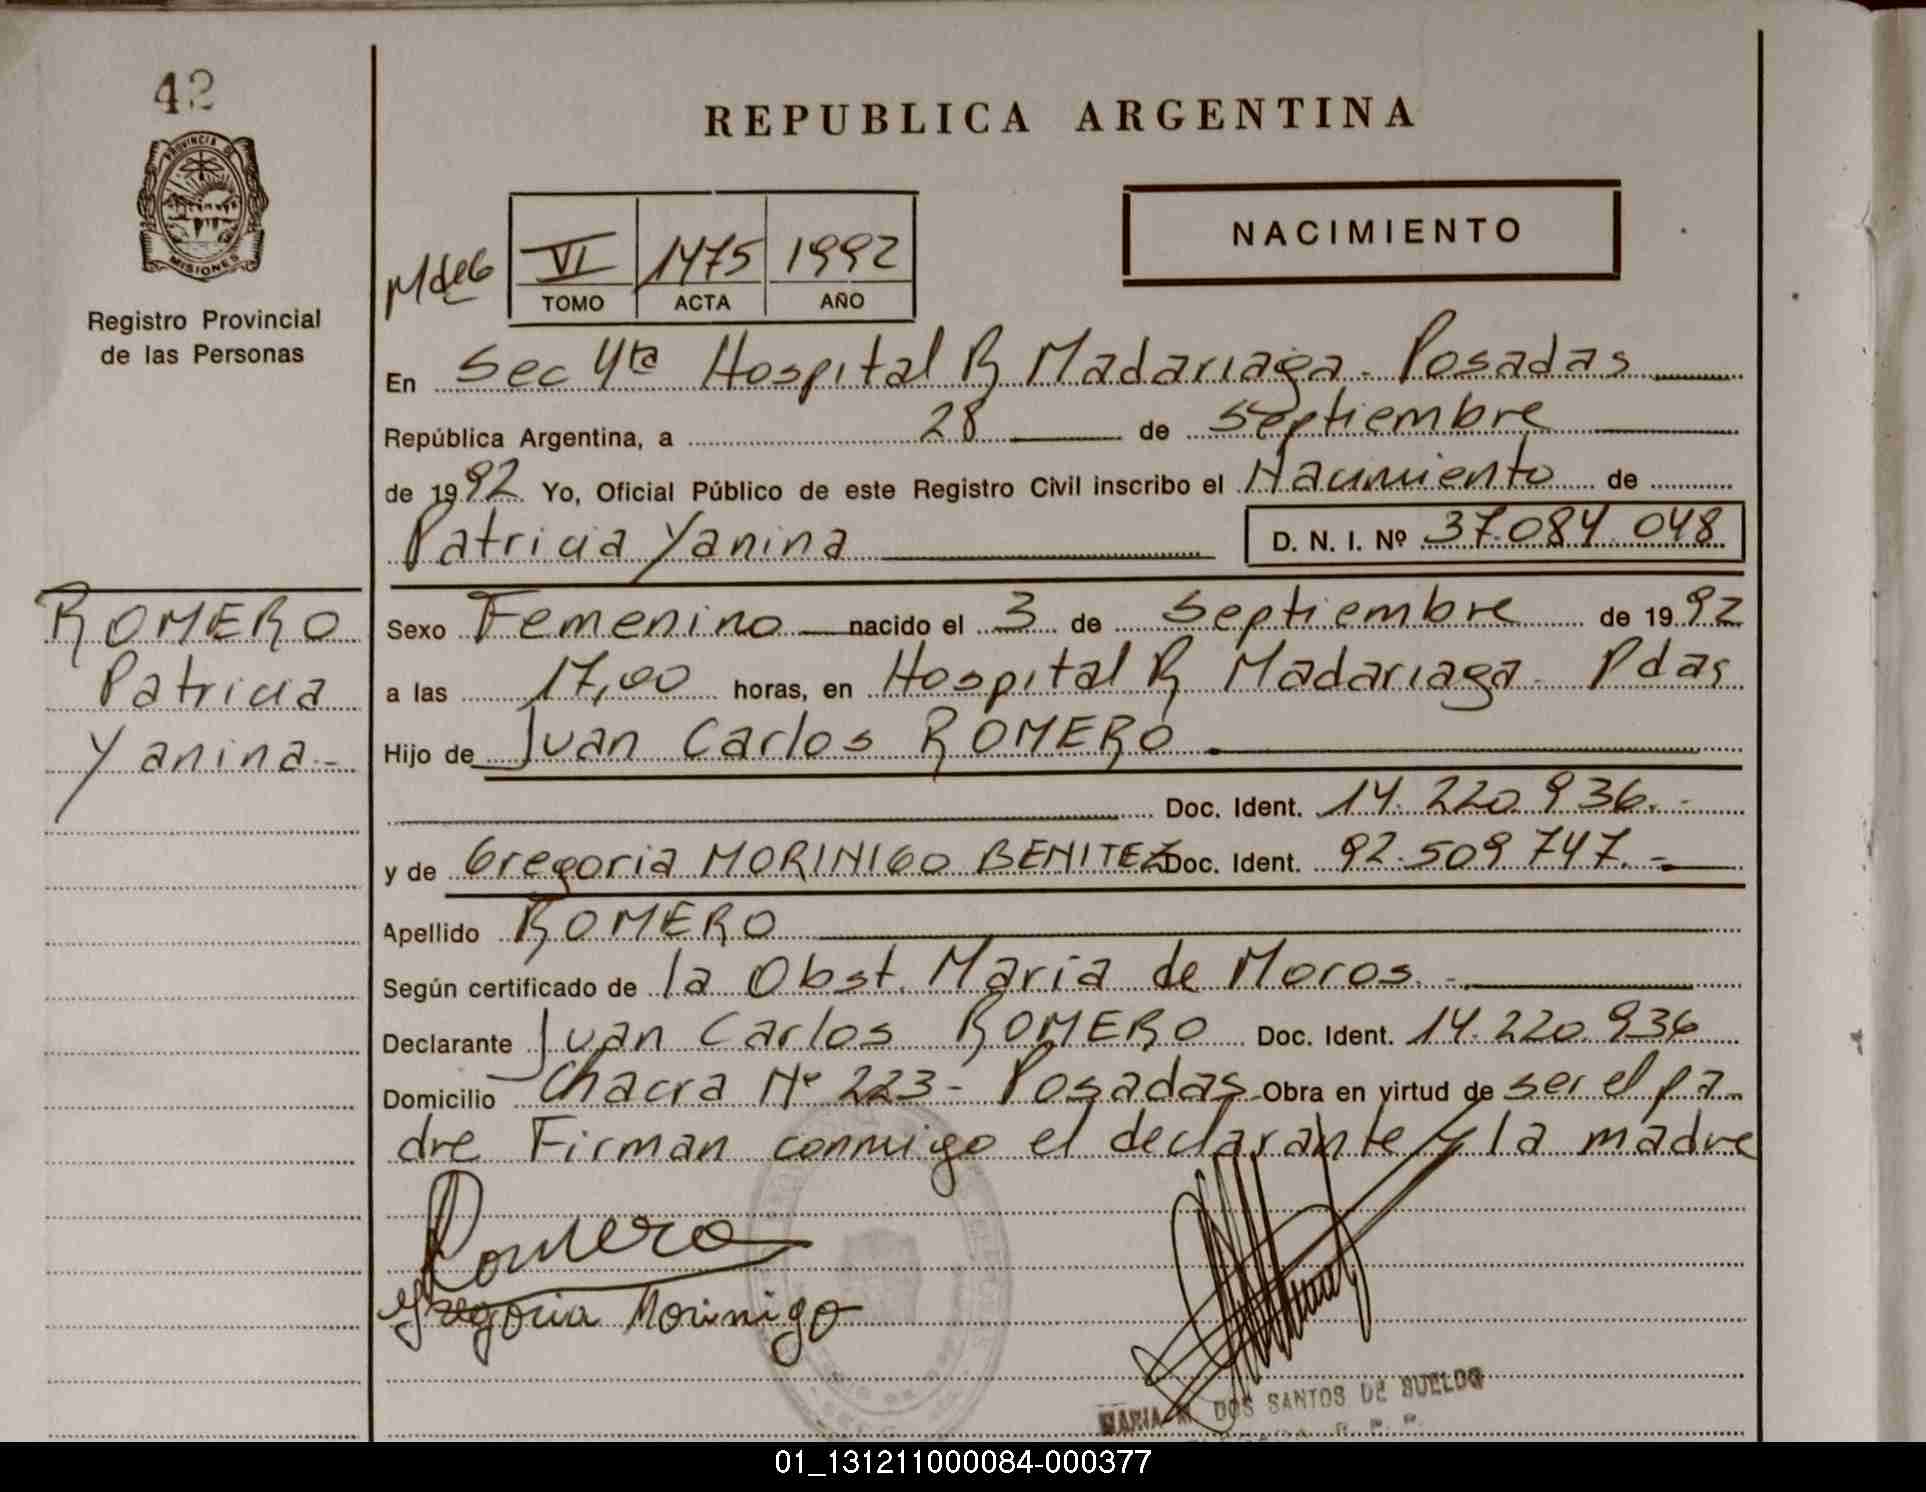 42
PROVINCIA DE
MISIONES
Registro Provincial
de las Personas
ROMERO
Patricia
Yanina.-
REPUBLICA ARGENTINA
NACIMIENTO
VI 1475 1992
TOMO ACTA AÑO
En Sec 4ta Hospital R Madariaga - Posadas
República Argentina, a 28 de Septiembre
de 1992 Yo, Oficial Público de este Registro Civil inscribo el Nacimiento de
Patricia Yanina D. N. I. Nº 37.084.048
Sexo Femenino nacido el 3 de Septiembre de 1992
a las 17,00 horas, en Hospital R Madariaga - Pdas
Hijo de Juan Carlos ROMERO
Doc. Ident. 14.220.936.-
y de Gregoria MORINIGO BENITEZ Doc. Ident. 92.509.747.-
Apellido ROMERO
Según certificado de la Obst. Maria de Moros.-
Declarante Juan Carlos ROMERO Doc. Ident. 14.220.936
Domicilio Chacra Nº 223 - Posadas Obra en virtud de ser el pa-
dre Firman conmigo el declarante y la madre
Romero
Gregoria Morinigo
MARIA M. DOS SANTOS DE SUELDO
01_131211000084-000377